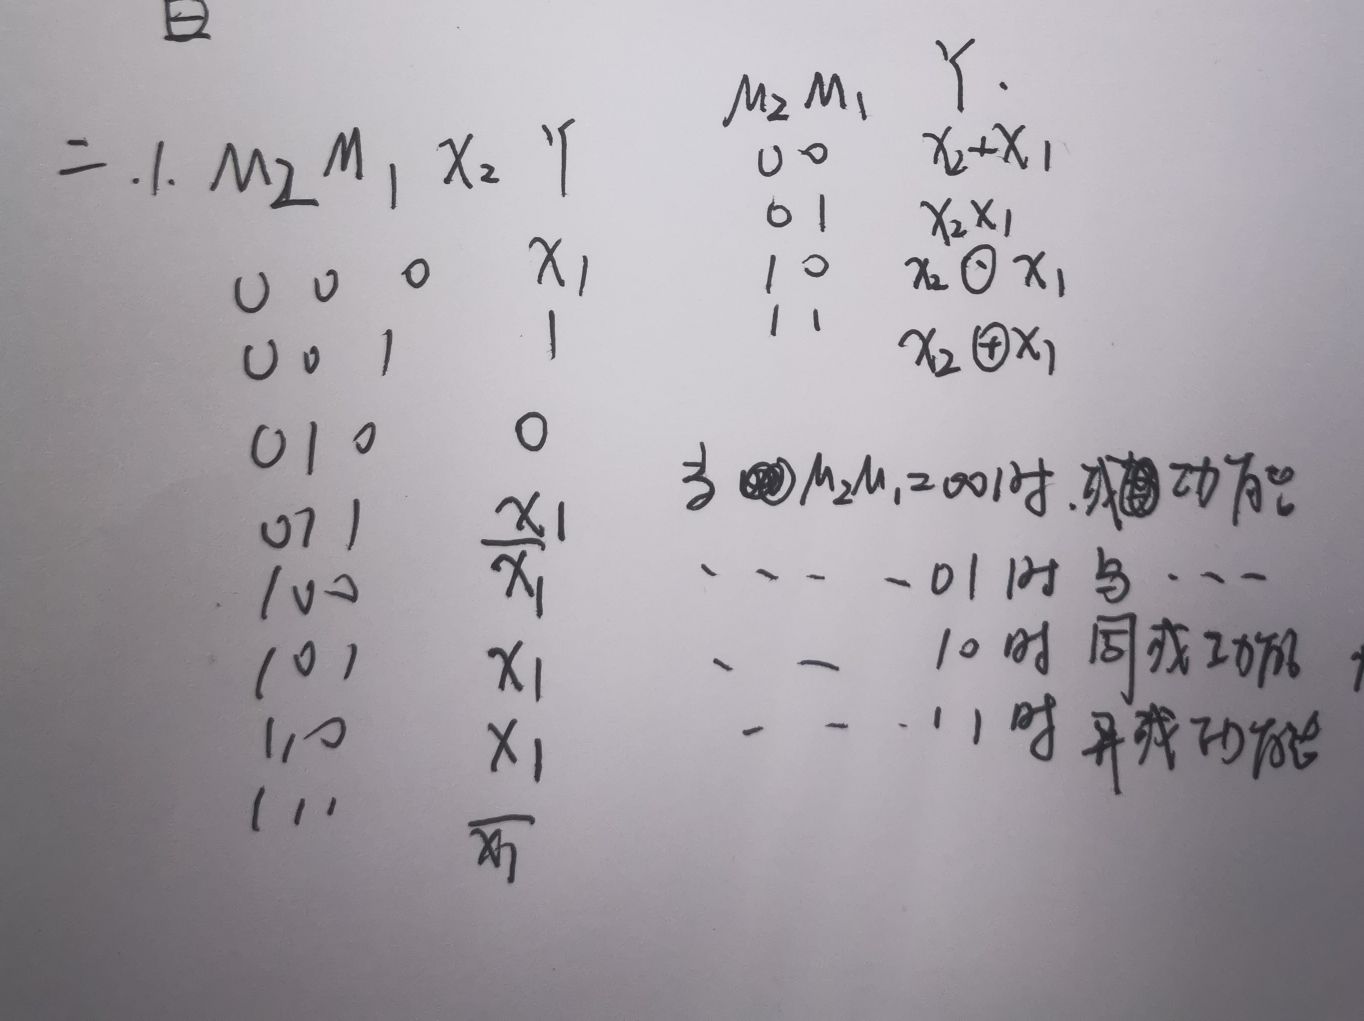 二.1. M₂ M₁ X₂ Y
0 0 0 X₁
0 0 1 1
0 1 0 0
0 1 1 X₁
1 0 0 X̅₁
1 0 1 X₁
1 1 0 X₁
1 1 1 X̅₁
M₂ M₁ Y.
0 0 X₂+X₁
0 1 X₂X₁
1 0 X₂⊙X₁
1 1 X₂⊕X₁
当 M₂M₁=00时.或功能
- - - - 01时 与 - - -
- - 10时 同或功能
- - - 11时 异或功能